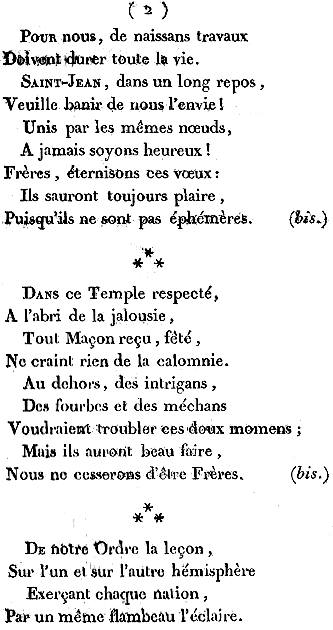 ( 2 )
POUR nous, de naissans travaux
Doivent durer toute la vie.
SAINT-JEAN, dans un long repos,
Veuille banir de nous l'envie!
Unis par les mêmes nœuds,
A jamais soyons heureux!
Frères, éternisons ces vœux:
Ils sauront toujours plaire,
Puisqu'ils ne sont pas éphémères. (bis.)
***
DANS ce Temple respecté,
A l'abri de la jalousie,
Tout Maçon reçu, fêté,
Ne craint rien de la calomnie.
Au dehors, des intrigans,
Des fourbes et des méchans
Voudraient troubler ces doux momens;
Mais ils auront beau faire,
Nous ne cesserons d'être Frères. (bis.)
***
DE notre Ordre la leçon,
Sur l'un et sur l'autre hémisphère
Exerçant chaque nation,
Par un même flambeau l'éclaire.